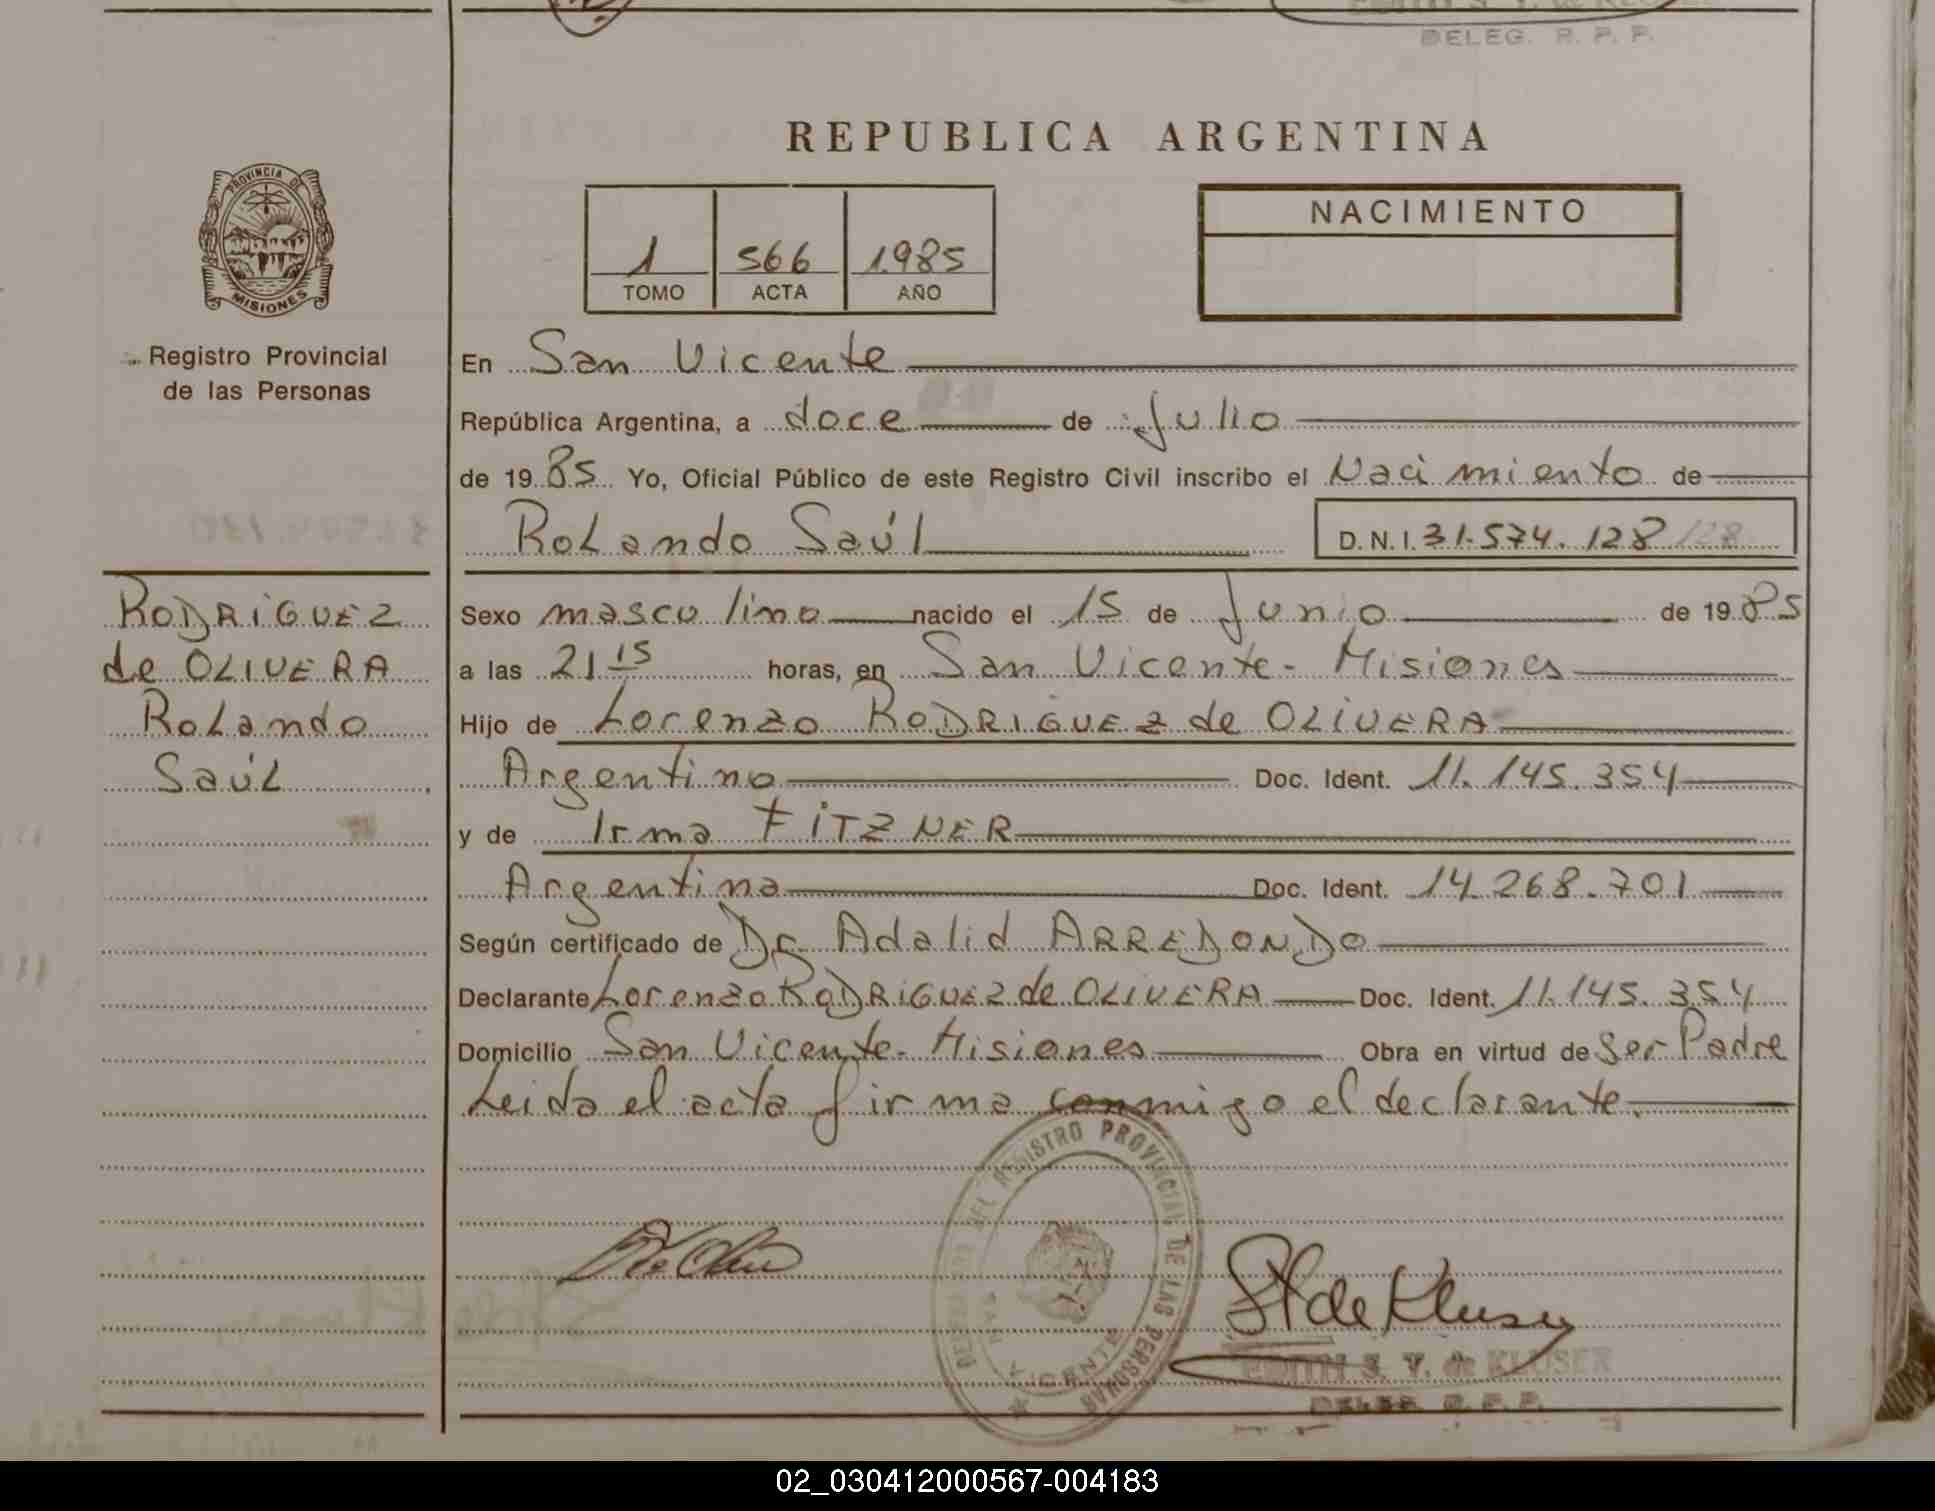 DELEG. R. P. P.
REPUBLICA ARGENTINA
PROVINCIA DE
MISIONES
Registro Provincial
de las Personas
NACIMIENTO
1 566 1985
TOMO ACTA AÑO
En San Vicente
República Argentina, a doce de Julio
de 1985 Yo, Oficial Público de este Registro Civil inscribo el Nacimiento de
Rolando Saúl D.N.I. 31.574.128 128
RODRIGUEZ
de OLIVERA
Rolando
Saúl
Sexo masculino nacido el 15 de Junio de 1985
a las 21 15 horas, en San Vicente - Misiones
Hijo de Lorenzo RODRIGUEZ de OLIVERA
Argentino Doc. Ident. 11.145.354
y de Irma FITZNER
Argentina Doc. Ident. 14.268.701
Según certificado de Dr. Adalid ARREDONDO
Declarante Lorenzo RODRIGUEZ de OLIVERA Doc. Ident. 11.145.354
Domicilio San Vicente - Misiones Obra en virtud de ser Padre
Leida el acta firma conmigo el declarante.
DEL REGISTRO PROVINCIAL DE LAS PERSONAS
VICENTE
S. V. de KLUSER
DELEG. R. P. P.
02_030412000567-004183